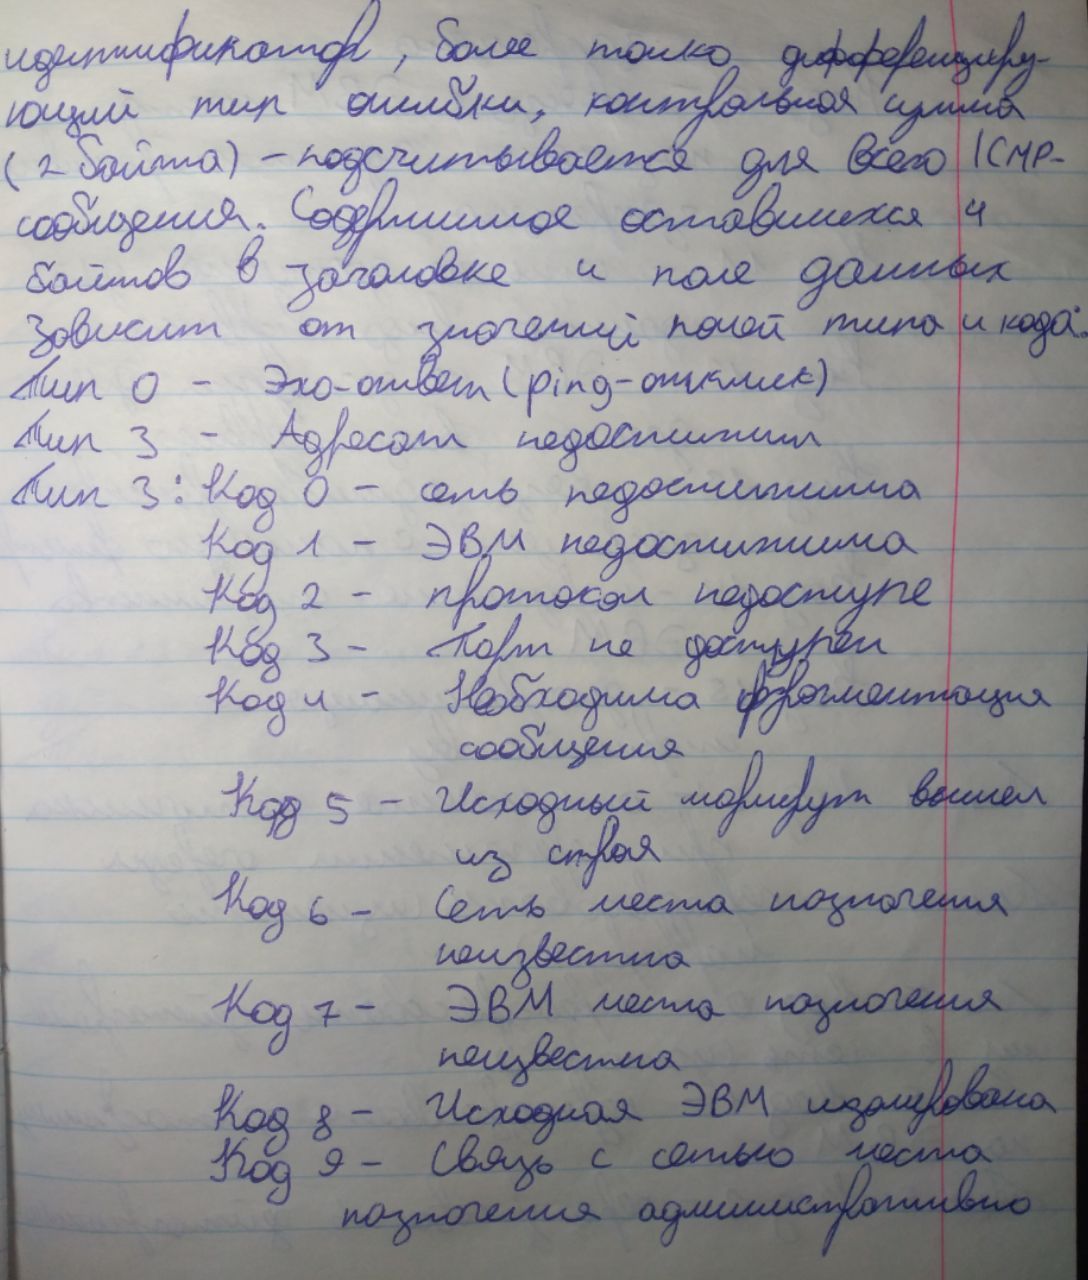 идентификатор, более тонко дифференциру-
ющий тип ошибки, контрольная сумма
(2 байта) – подсчитывается для всего ICMP-
сообщения. Содержимое оставшихся 4
байтов в заголовке и поле данных
зависит от значений полей типа и кода:
Тип 0 – Эхо-ответ (ping-отклик)
Тип 3 – Адресат недостижим
Тип 3: Код 0 – сеть недостижима
Код 1 – ЭВМ недостижима
Код 2 – протокол недоступе
Код 3 – Порт не доступен
Код 4 – Необходима фрагментация
сообщения
Код 5 – Исходный маршрут вышел
из строя
Код 6 – Сеть места назначения
неизвестна
Код 7 – ЭВМ места назначения
неизвестна
Код 8 – Исходная ЭВМ изолирована
Код 9 – Связь с сетью места
назначения административно